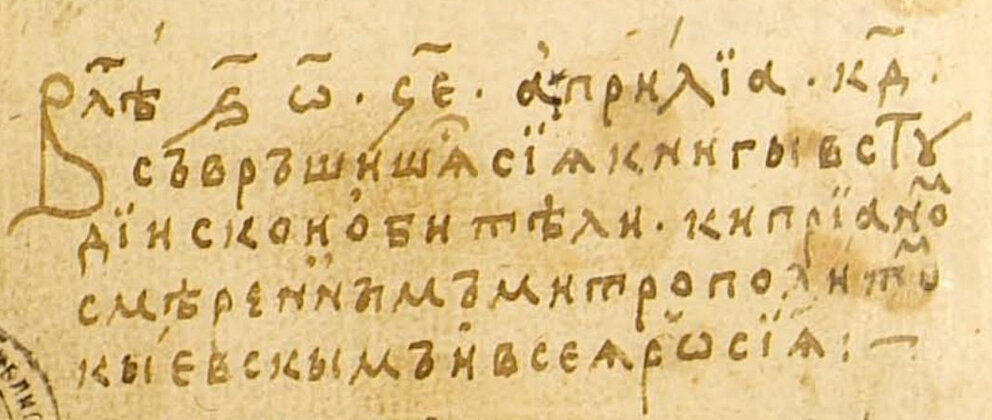 В лѣ҃т ҂ѕ҃ ѡ҃ ч҃е · априлїа · к҃д ·
съвръшишѧ сїѧ книгы в сту
дїискои обитѣли · кипрїаном
смѣреннымъ митрополитом
кыевскымъ и всеѧ рѡсїѧ : —